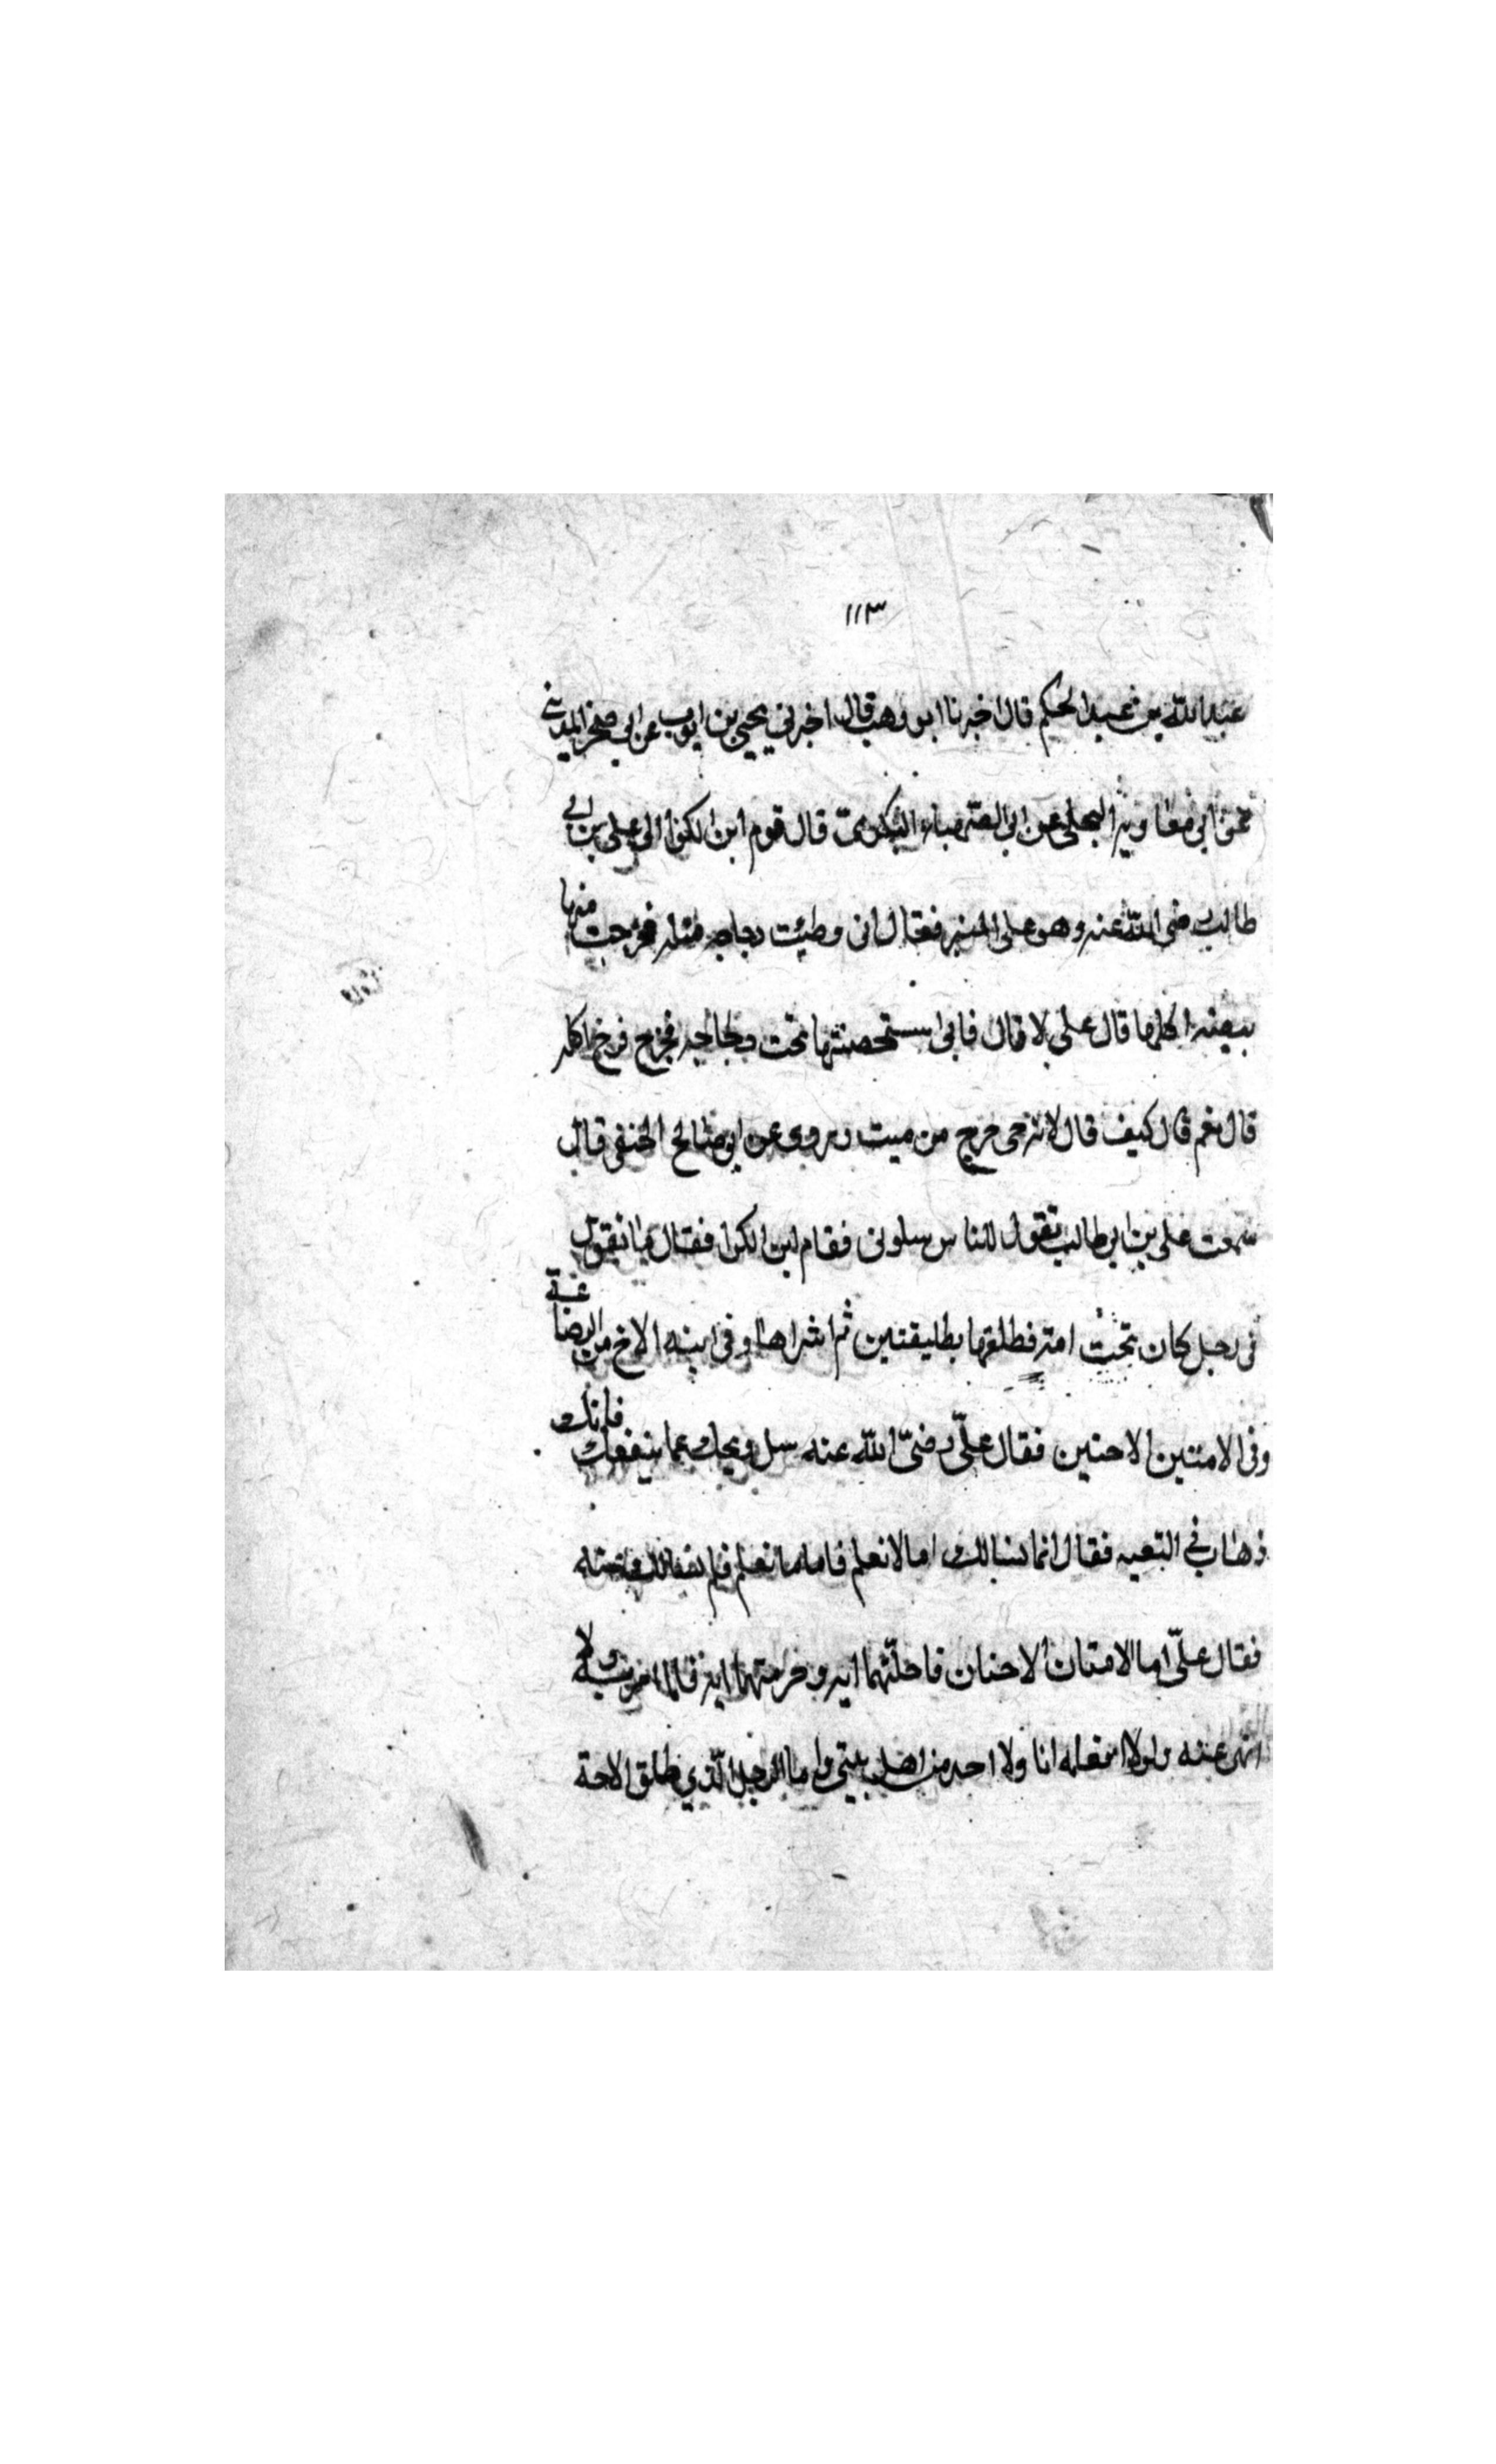 ١١٣
عبد الله بن عبد الحكم قال اخبرنا ابن وهب قال اخبرني يحيى بن ايوب عن ابي صخر المدني
عن ابي معاوية البجلي عن ابي الصهباء البكري قال قوم ابن الكوا الى علي بن ابي
طالب رضى الله عنه وهو على المنبر فقال انى وطئت دجاجه ميتة فخرجت منها
بيضه اكلها قال علي لا قال فانى استحضنتها تحت دجاجه فخرج فرخ اكله
قال نعم قال كيف قال لانه حى خرج من ميت وروى عن ابى صالح الحنفى قال
سمعت على بن ابى طالب يقول للناس سلونى فقام ابن الكوا فقال ما تقول
فى رجل كان تحت امته فطلقها بطليقتين ثم اشراها وفى ابنه الاخ من الرضاعة
وفى الامتين الاحتين فقال علىّ رضىّ الله عنه سل ويحك عما ينفعك فانك
ذهاب في التعيه فقال انما نسالك اما لا نعلم فاما ما نعلم فلم
فقال علىّ اما الامتان الاحنان فاحلّتهما ايه وحرمتهما ايه فلا امر به ولا
انهى عنه ولا افعله انا ولا احد من اهل بيتي واما الرجل الّذي طلق الامة